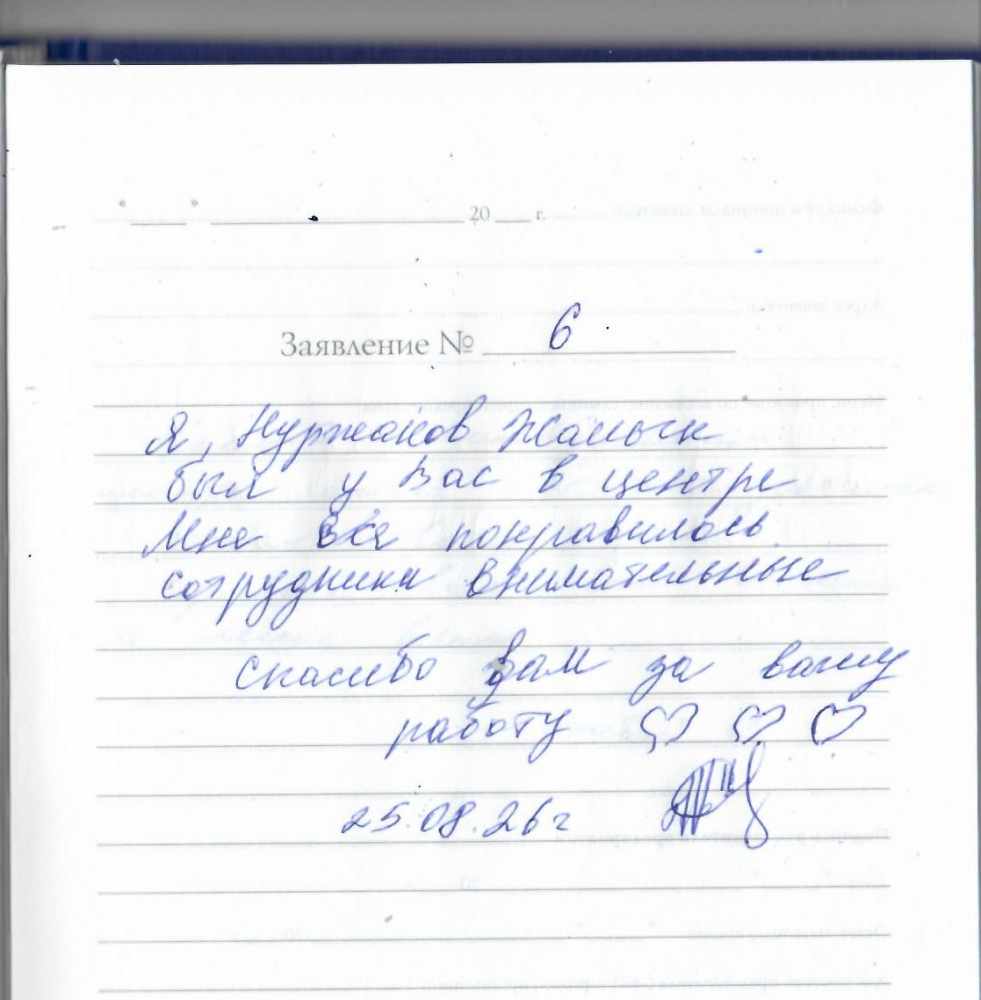 20 г.
Заявление № 6
Я, Нуржанов Жалын
был у Вас в центре
Мне все понравилось
сотрудники внимательные
спасибо вам за вашу
работу ♡ ♡ ♡
25.08.26 г